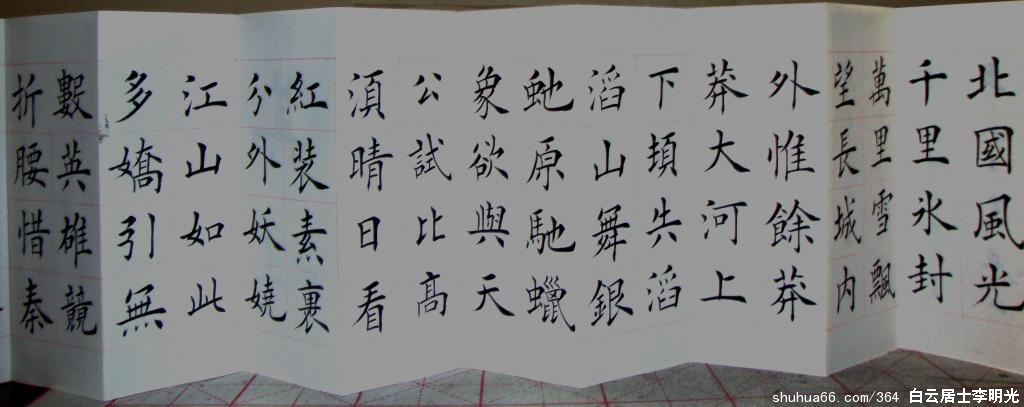 北國風光
千里氷封
萬里雪飄
望長城内
外惟餘莽
莽大河上
下頓失滔
滔山舞銀
虵原馳蠟
象欲與天
公試比高
湏晴日看
紅装素裹
分外妖嬈
江山如此
多嬌引無
數英雄競
折腰惜秦
shuhua66.com/364 白云居士李明光